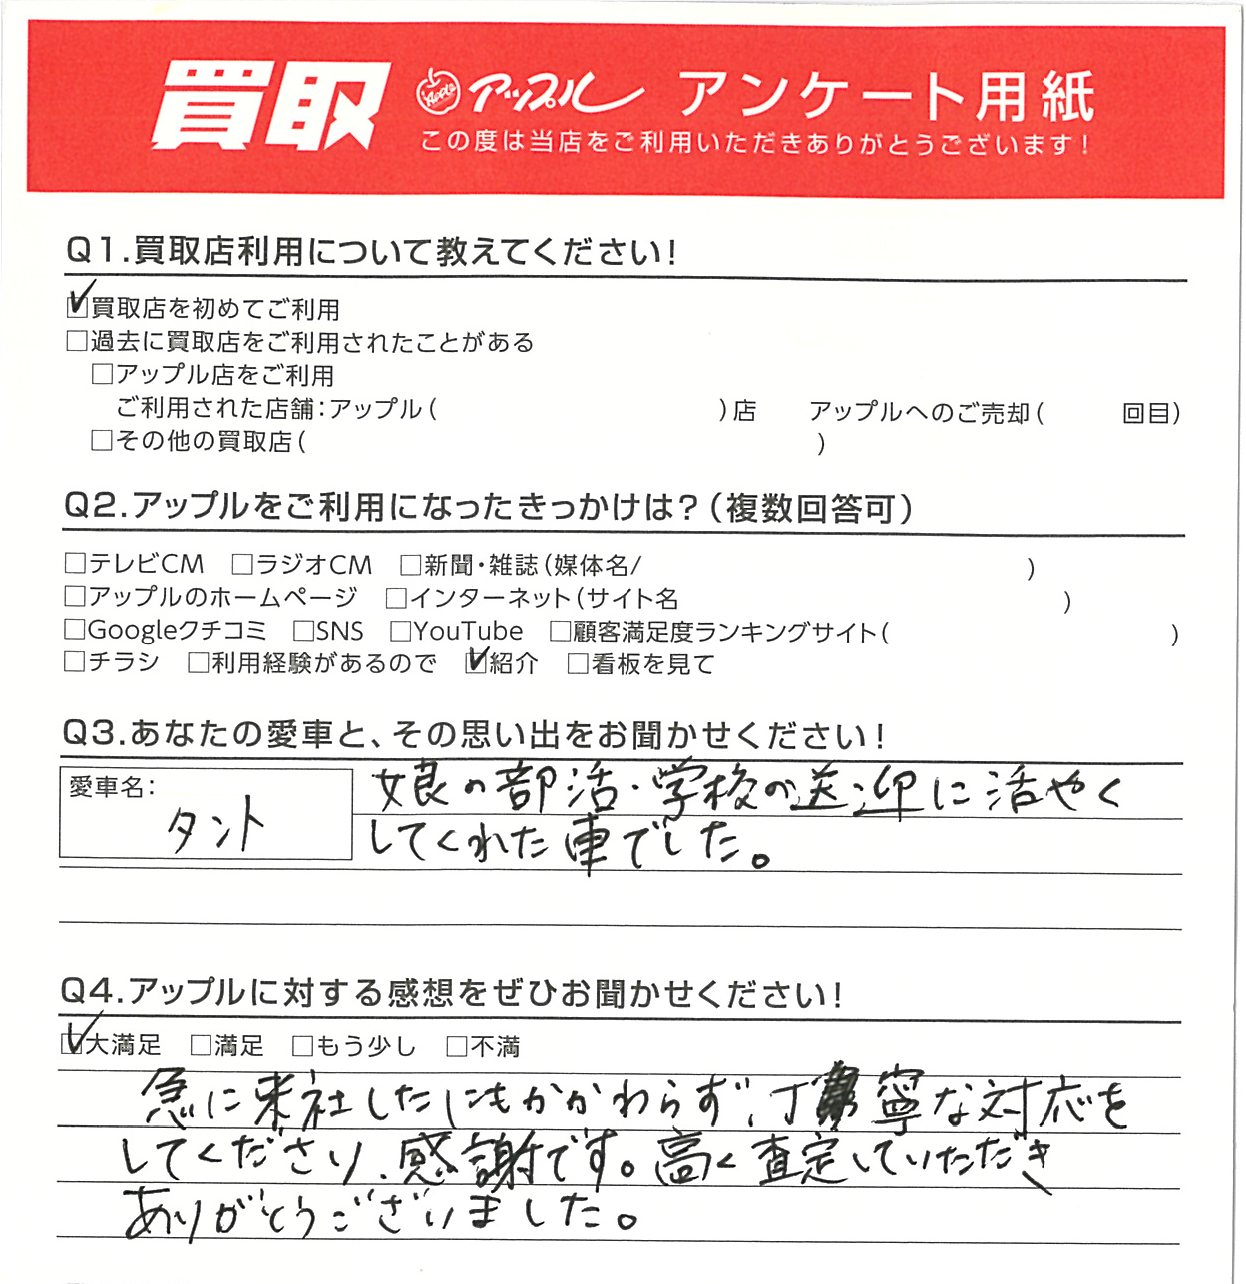 買取 Apple アップル アンケート用紙
この度は当店をご利用いただきありがとうございます!
Q1.買取店利用について教えてください!
☑買取店を初めてご利用
□過去に買取店をご利用されたことがある
□アップル店をご利用
ご利用された店舗:アップル( )店 アップルへのご売却( 回目)
□その他の買取店( )
Q2.アップルをご利用になったきっかけは?(複数回答可)
□テレビCM □ラジオCM □新聞・雑誌(媒体名/ )
□アップルのホームページ □インターネット(サイト名 )
□Googleクチコミ □SNS □YouTube □顧客満足度ランキングサイト( )
□チラシ □利用経験があるので ☑紹介 □看板を見て
Q3.あなたの愛車と、その思い出をお聞かせください!
愛車名:
タント
娘の部活・学校の送迎に活やく
してくれた車でした。
Q4.アップルに対する感想をぜひお聞かせください!
☑大満足 □満足 □もう少し □不満
急に来社したにもかかわらず、丁寧な対応を
してくださり、感謝です。高く査定していただき
ありがとうございました。